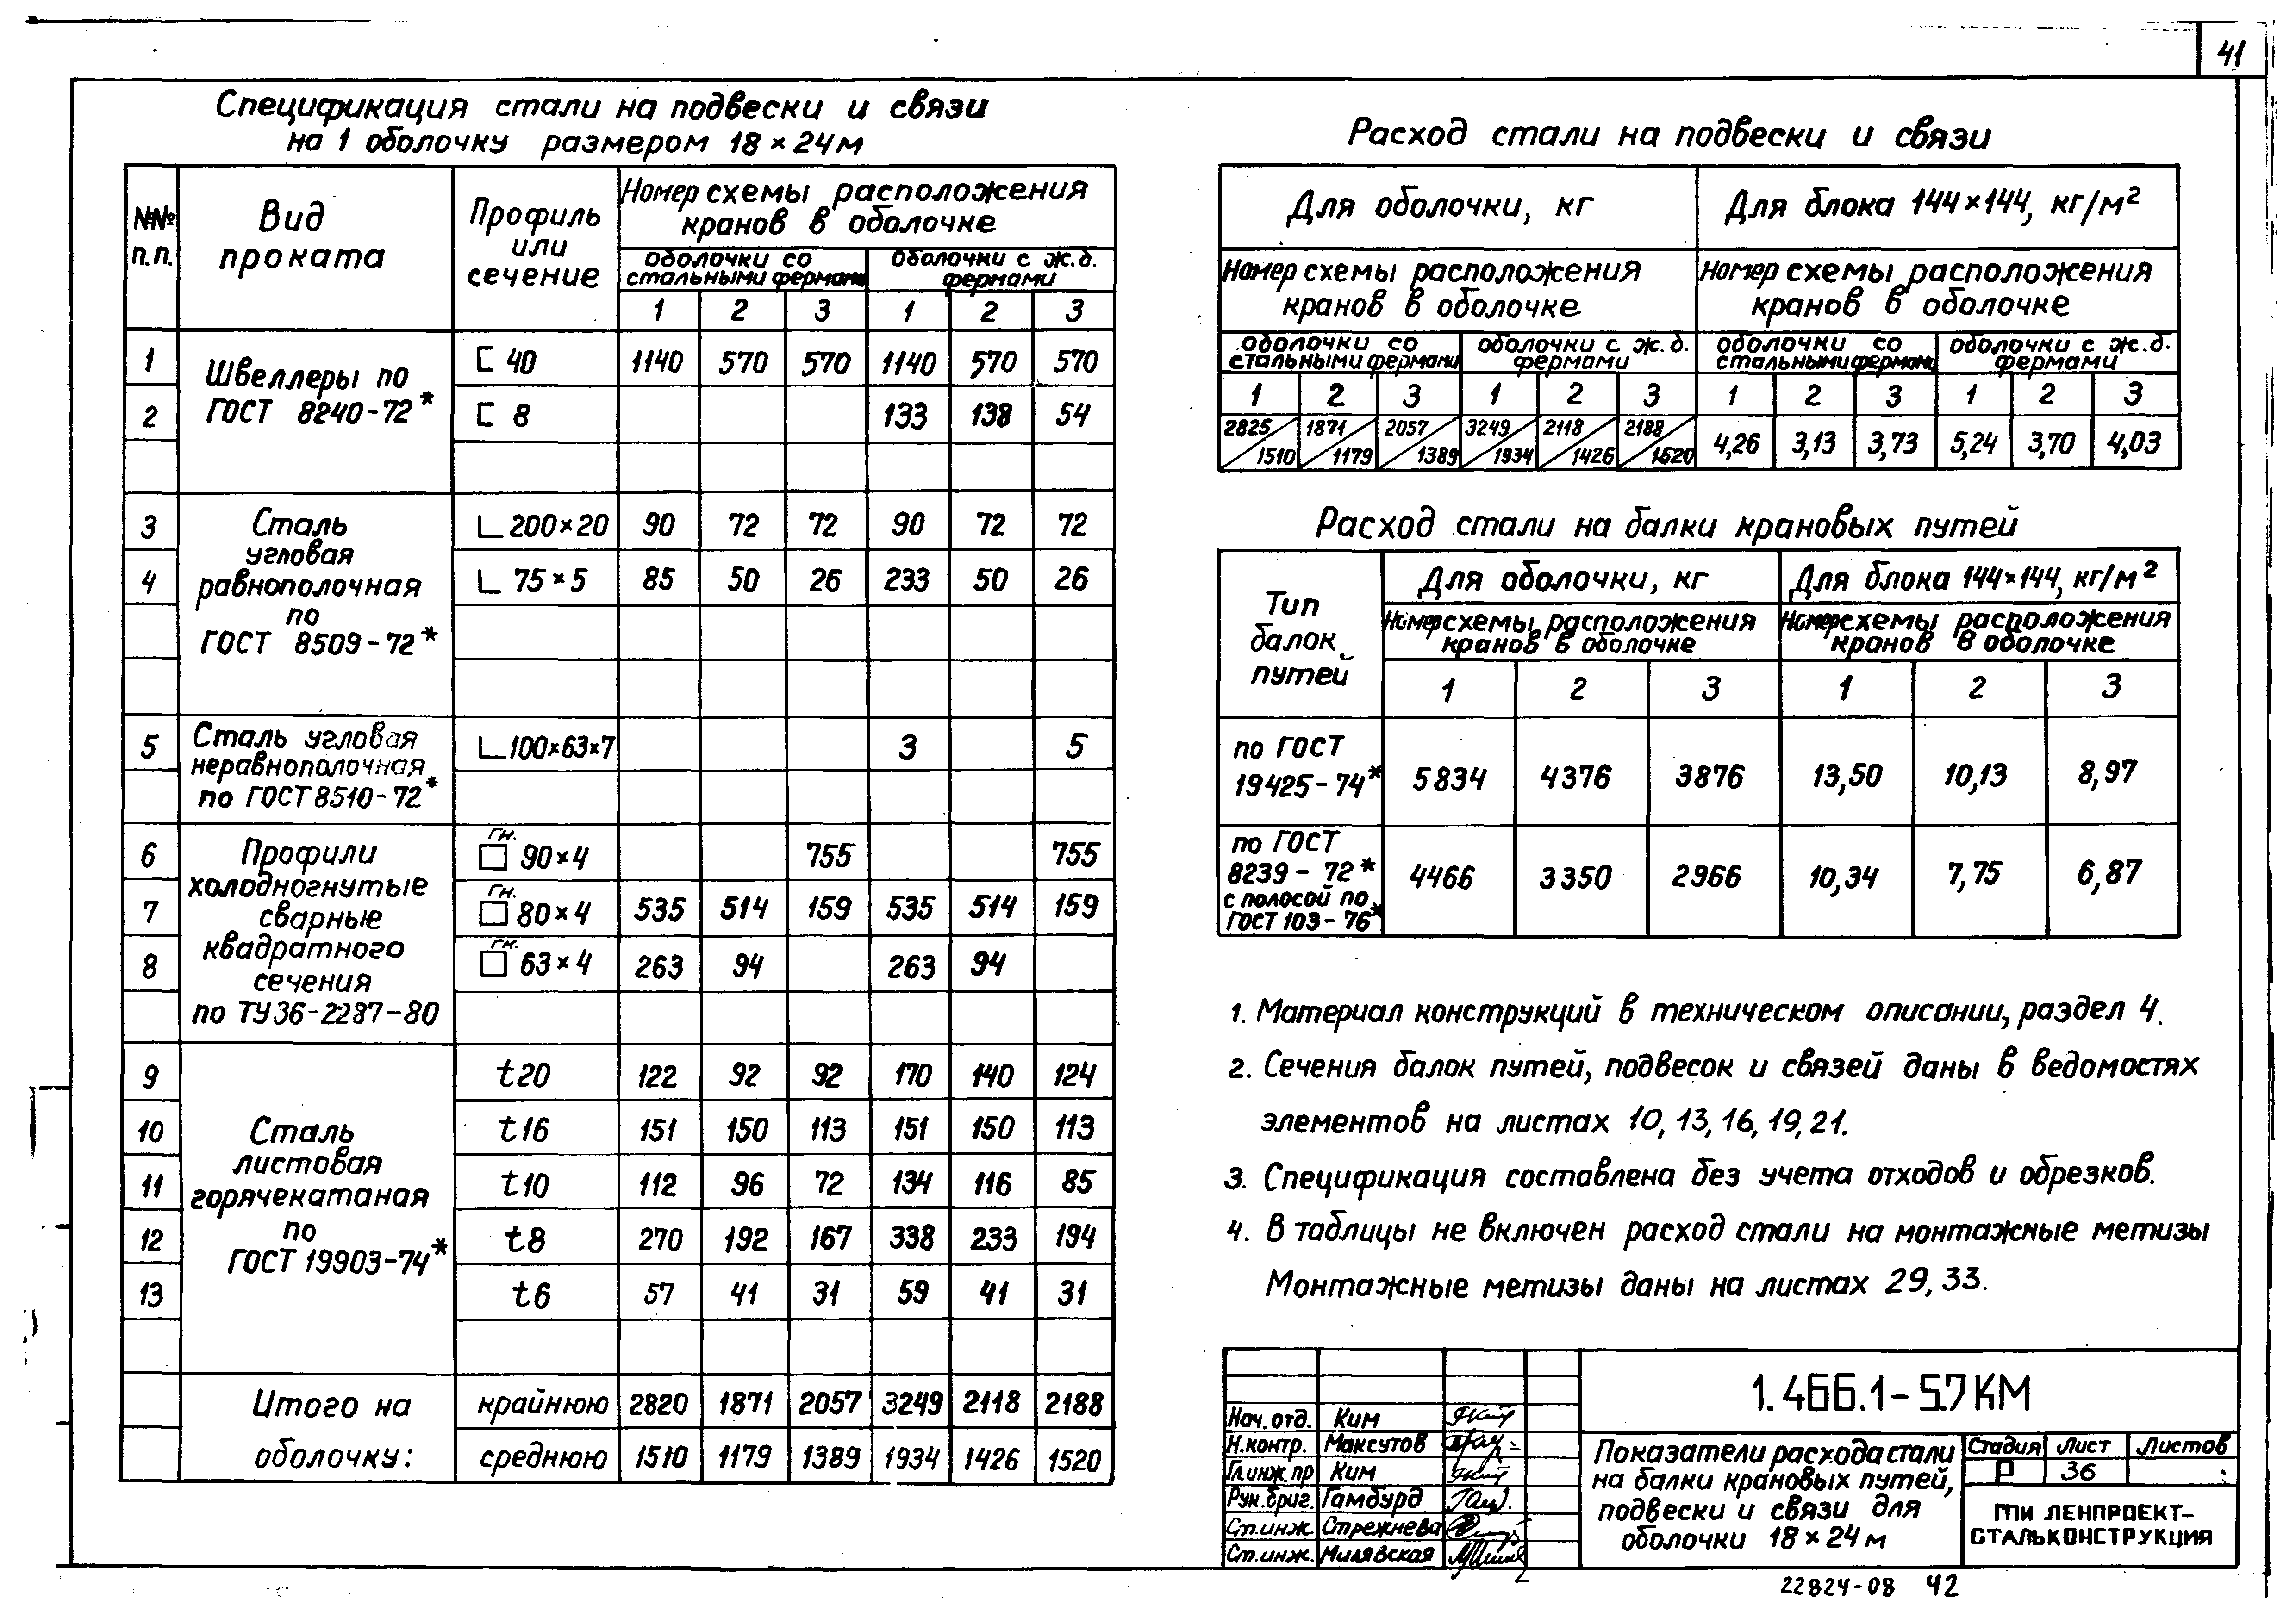 41
Спецификация стали на подвески и связи
на 1 оболочку размером 18×24м
№№ п.п.
Вид проката
Профиль или сечение
Номер схемы расположения кранов в оболочке
оболочки со стальными фермами
оболочки с ж.б. фермами
1 2 3 1 2 3
Швеллеры по ГОСТ 8240-72*
1 [ 40 1140 570 570 1140 570 570
2 [ 8 133 138 54
Сталь угловая равнополочная по ГОСТ 8509-72*
3 L 200×20 90 72 72 90 72 72
4 L 75×5 85 50 26 233 50 26
Сталь угловая неравнополочная по ГОСТ 8510-72*
5 L 100×63×7 3 5
Профили холодногнутые сварные квадратного сечения по ТУ36-2287-80
6 гн. □ 90×4 755 755
7 гн. □ 80×4 535 514 159 535 514 159
8 гн. □ 63×4 263 94 263 94
Сталь листовая горячекатаная по ГОСТ 19903-74*
9 t20 122 92 92 170 140 124
10 t16 151 150 113 151 150 113
11 t10 112 96 72 134 116 85
12 t8 270 192 167 338 233 194
13 t6 57 41 31 59 41 31
Итого на оболочку:
крайнюю 2820 1871 2057 3249 2118 2188
среднюю 1510 1179 1389 1934 1426 1520
Расход стали на подвески и связи
Для оболочки, кг
Для блока 144×144, кг/м²
Номер схемы расположения кранов в оболочке
Номер схемы расположения кранов в оболочке
оболочки со стальными фермами
оболочки с ж.б. фермами
оболочки со стальными фермами
оболочки с ж.б. фермами
1 2 3 1 2 3 1 2 3 1 2 3
2825/1510 1871/1179 2057/1389 3249/1934 2118/1426 2188/1520 4,26 3,13 3,73 5,24 3,70 4,03
Расход стали на балки крановых путей
Тип балок путей
Для оболочки, кг
Для блока 144×144, кг/м²
Номер схемы расположения кранов в оболочке
Номер схемы расположения кранов в оболочке
1 2 3 1 2 3
по ГОСТ 19425-74* 5834 4376 3876 13,50 10,13 8,97
по ГОСТ 8239-72* с полосой по ГОСТ 103-76* 4466 3350 2966 10,34 7,75 6,87
1. Материал конструкций в техническом описании, раздел 4.
2. Сечения балок путей, подвесок и связей даны в ведомостях
элементов на листах 10, 13, 16, 19, 21.
3. Спецификация составлена без учета отходов и обрезков.
4. В таблицы не включен расход стали на монтажные метизы
Монтажные метизы даны на листах 29, 33.
Нач.отд. Ким
Н.контр. Максутов
Гл.инж.пр Ким
Рук.бриг. Гамбурд
Ст.инж. Стрежнева
Ст.инж. Милявская
1.466.1-5.7КМ
Показатели расхода стали
на балки крановых путей,
подвески и связи для
оболочки 18×24м
Стадия Лист Листов
Р 36
ГПИ ЛЕНПРОЕКТ-
СТАЛЬКОНСТРУКЦИЯ
22824-08 42